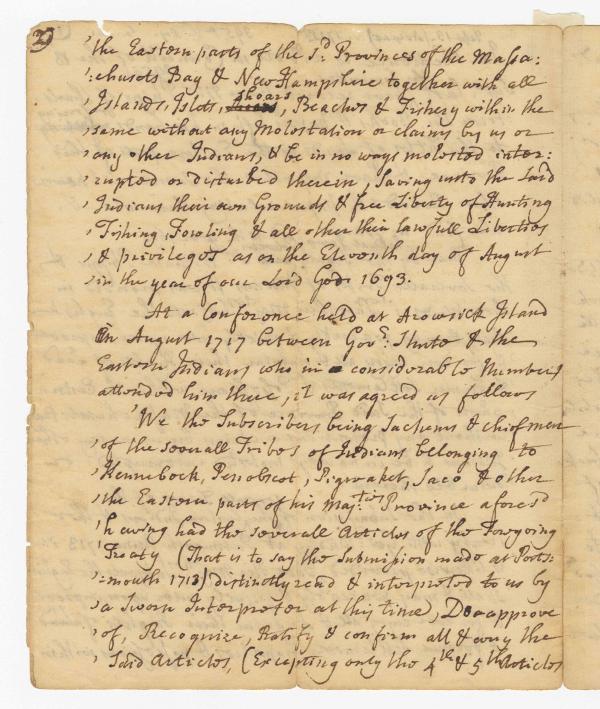 2)
'the Eastern parts of the sd. Provinces of the Massa:
':chusets Bay & New Hampshire together with all
'Islands, Islets, shoars, Beaches & Fishery within the
'same without any Molestation or claims by us or
'any other Indians, & be in no ways molested inter:
'rupted or disturbed therein, Saving unto the said
'Indians their own Grounds & free Liberty of Hunting
'Fishing, Fowling & all other their lawfull Liberties
'& privileges as on the Eleventh day of August
'in the year of our Lord God: 1693.
At a Conference held at Arowsick Island
in August 1717 between Govr: Shute & the
Eastern Indians who in considerable Numbers
attended him there, it was agreed as follows
'We the Subscribers being Sachems & chief men
'of the severall Tribes of Indians belonging to
'Kennebeck, Penobscot, Pigwaket, Saco & other
'the Eastern parts of his Majties Province aforesd
'having had the severall Articles of the Foregoing
'Treaty (That is to say the Submission made at Ports:
':mouth 1713) distinctly read & interpreted to us by
'a Sworn Interpreter at this time, Do approve
'of, Recognize, Ratify & confirm all & every the
'Said Articles, (Excepting only the 4th & 5th Articles